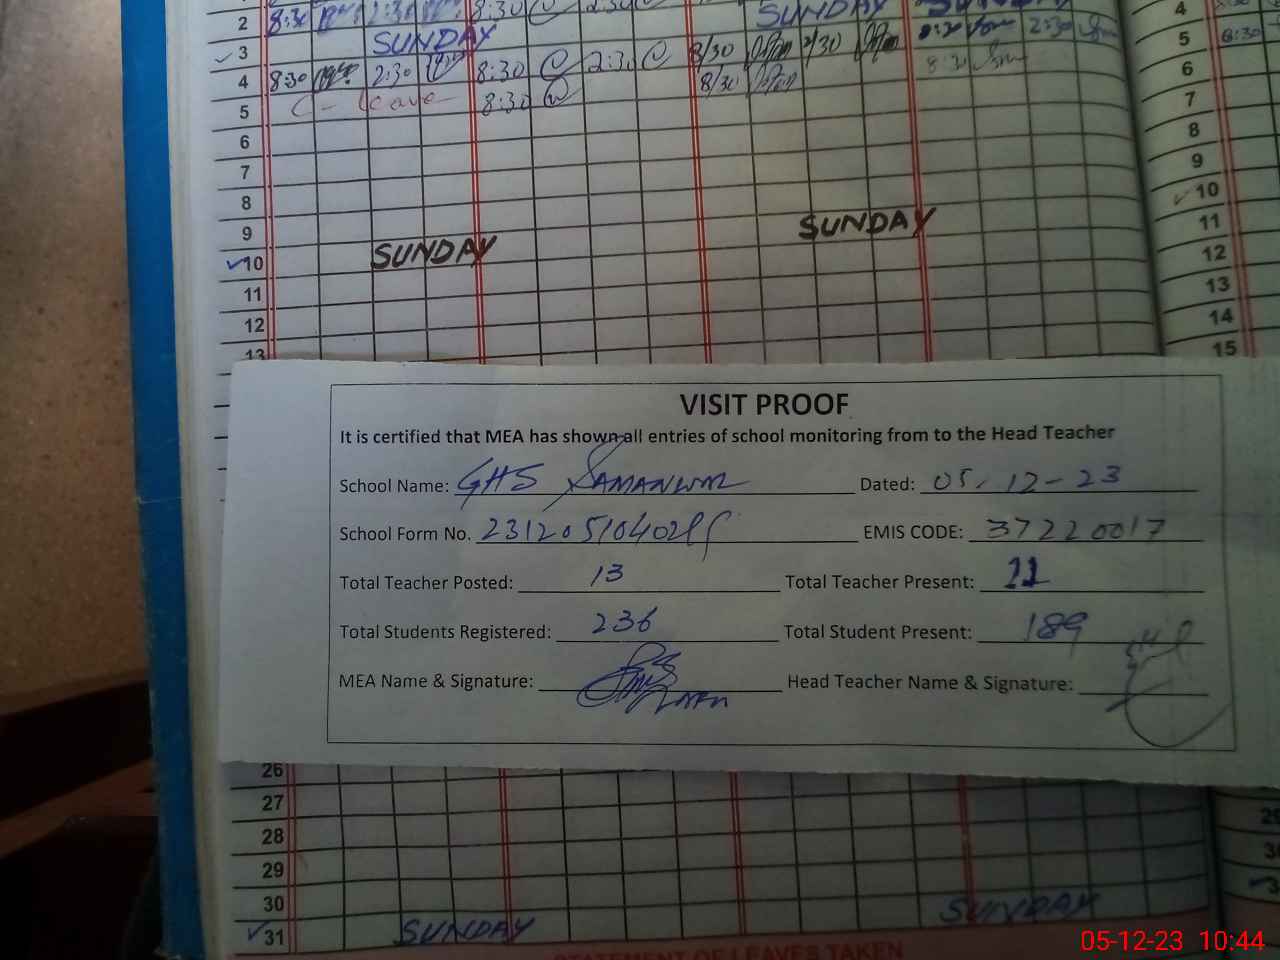 2 8:30 2:30 8:30 2:30 SUNDAY SUNDAY 2:30 4
3 SUNDAY 8/30 2/30 8:30 2:30 5 8:30
4 8:30 2:30 8:30 2:30 8/30 8:30 6
5 C- Leave 8:30 7
6 8
7 9
8 10
9 SUNDAY 11
10 SUNDAY 12
11 13
12 14
13 15
VISIT PROOF
It is certified that MEA has shown all entries of school monitoring from to the Head Teacher
School Name: GHS Samanwal Dated: 05-12-23
School Form No. EMIS CODE: 37220017
Total Teacher Posted: 13 Total Teacher Present: 11
Total Students Registered: 236 Total Student Present: 189
MEA Name & Signature: Head Teacher Name & Signature:
26
27
28
29
30
31 SUNDAY SUNDAY
STATEMENT OF LEAVES TAKEN
05-12-23 10:44